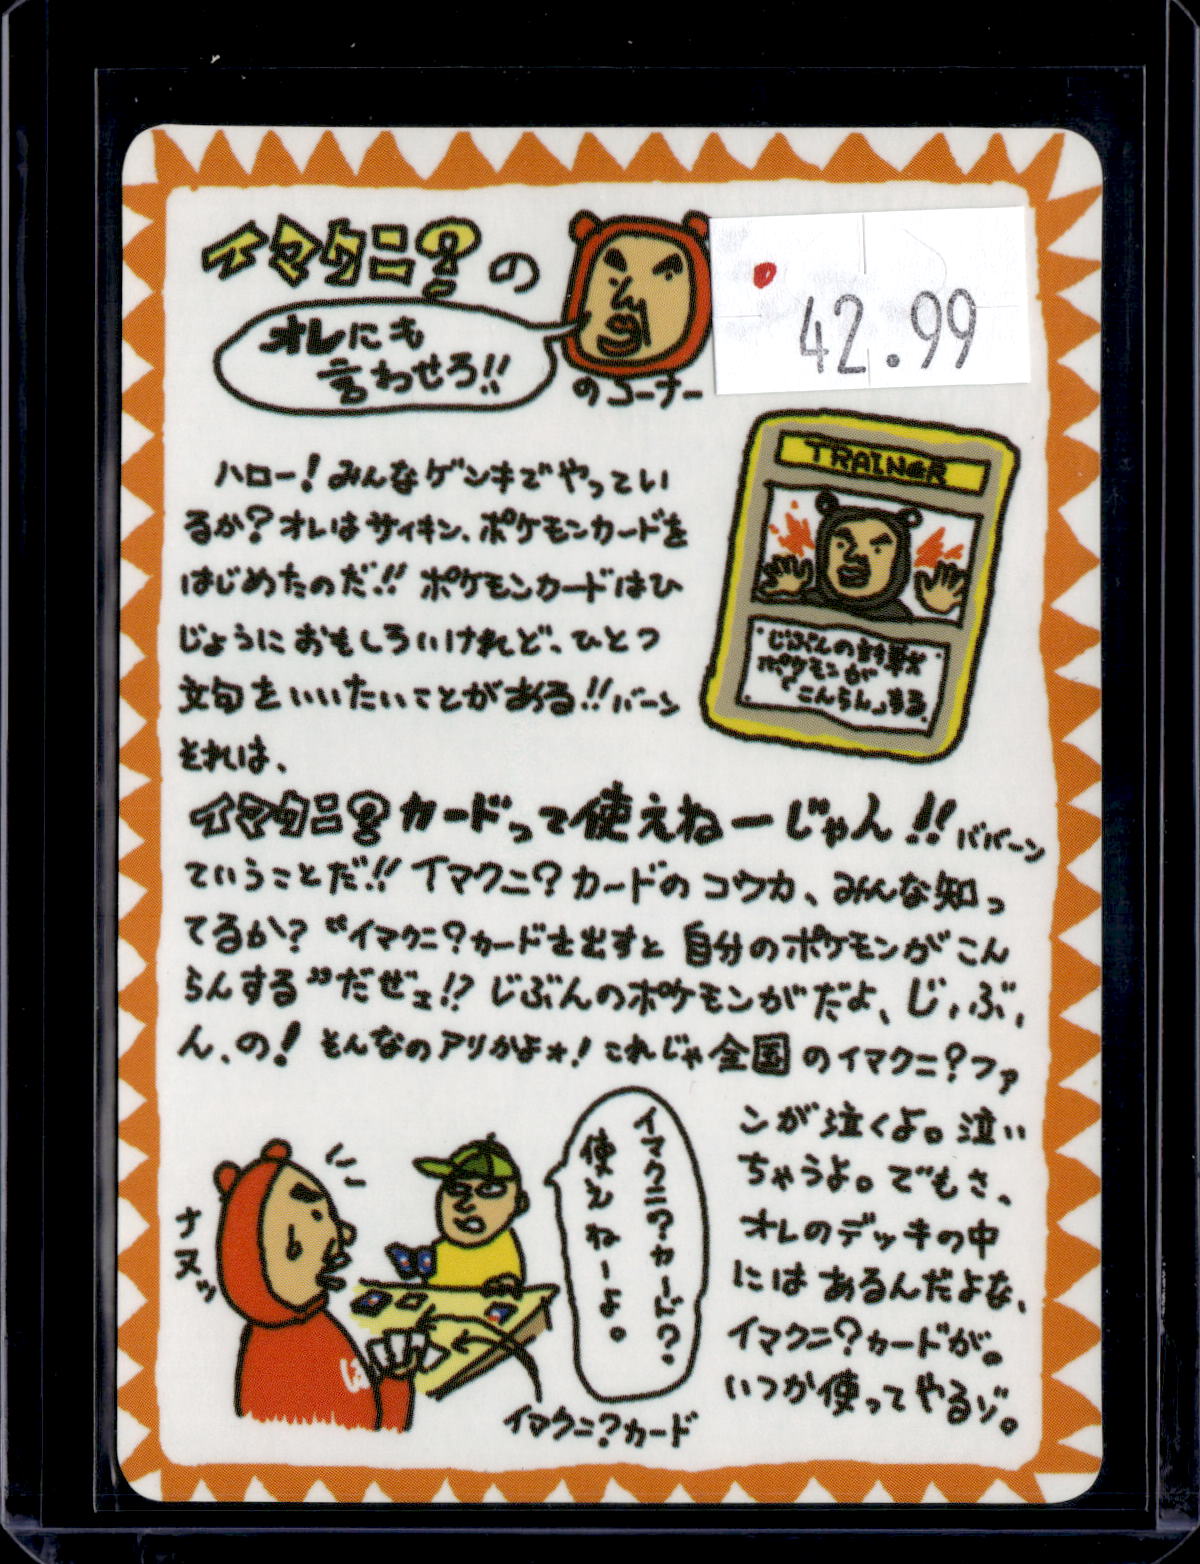 イマクニ?の
オレにも
言わせろ!!
のコーナー
42.99
ハロー!みんなゲンキでやってい
るか?オレはサイキン、ポケモンカードを
はじめたのだ!!ポケモンカードはひ
じょうにおもしろいけれど、ひとつ
文句をいいたいことがある!!バーン
それは、
TRAINER
じぶんの対戦
ポケモンが
「こんらん」する。
イマクニ?カードって使えねーじゃん!!ババーン
ていうことだ!!イマクニ?カードのコウカ、みんな知っ
てるか?“イマクニ?カードを出すと自分のポケモンがこん
らんする”だぜェ!?じぶんのポケモンがだよ、じ、ぶ、
ん、の!そんなのアリかよォ!これじゃ全国のイマクニ?ファ
ンが泣くよ。泣い
ちゃうよ。でもさ、
オレのデッキの中
にはあるんだよな、
イマクニ?カードが。
いつか使ってやるゾ。
イマクニ?カード?
使えねーよ。
ナヌッ
イマクニ?カード